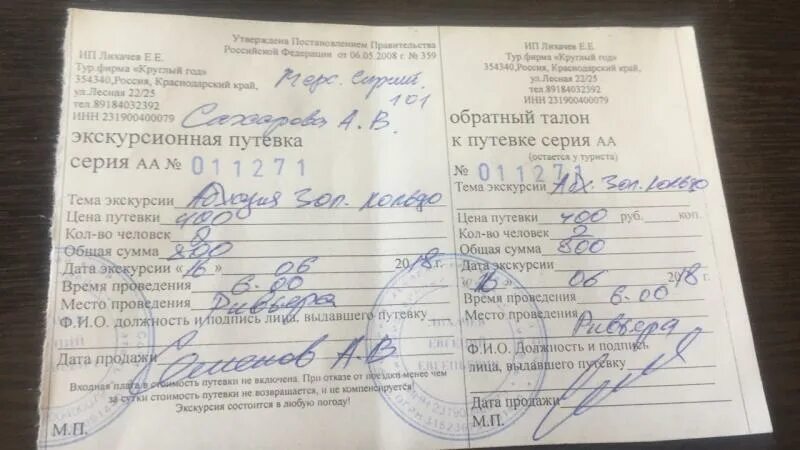 Утверждена Постановлением Правительства
Российской Федерации от 06.05.2008 г. № 359
ИП Лихачев Е.Е.
Тур.фирма «Круглый год»
354340,Россия, Краснодарский край,
ул.Лесная 22/25
тел.89184032392
ИНН 231900400079
101
Сахарова А.В.
экскурсионная путевка
серия АА № 011271
Тема экскурсии Абхазия Зол. кольцо
Цена путевки 400
Кол-во человек 2
Общая сумма 800
Дата экскурсии «16» 06 2018г.
Время проведения 6.00
Место проведения Ривьера
Ф.И.О. должность и подпись лица, выдавшего путевку
Семенов А.В
Дата продажи
Входная плата в стоимость путевки не включена. При отказе от поездки менее чем
за сутки стоимость путевки не возвращается, и не компенсируется!
Экскурсия состоится в любую погоду!
М.П.
ИП Лихачев Е.Е.
Тур.фирма «Круглый год»
354340,Россия, Краснодарский край,
ул.Лесная 22/25
тел.89184032392
ИНН 231900400079
обратный талон
к путевке серия АА
(остается у туриста)
№ 011271
Тема экскурсии Абх. Зол. кольцо
Цена путевки 400 руб. коп.
Кол-во человек 2
Общая сумма 800
Дата экскурсии
«16» 06 2018г.
Время проведения 6.00
Место проведения
Ривьера
Ф.И.О. Должность и подпись
лица, выдавшего путевку
Дата продажи
М.П.